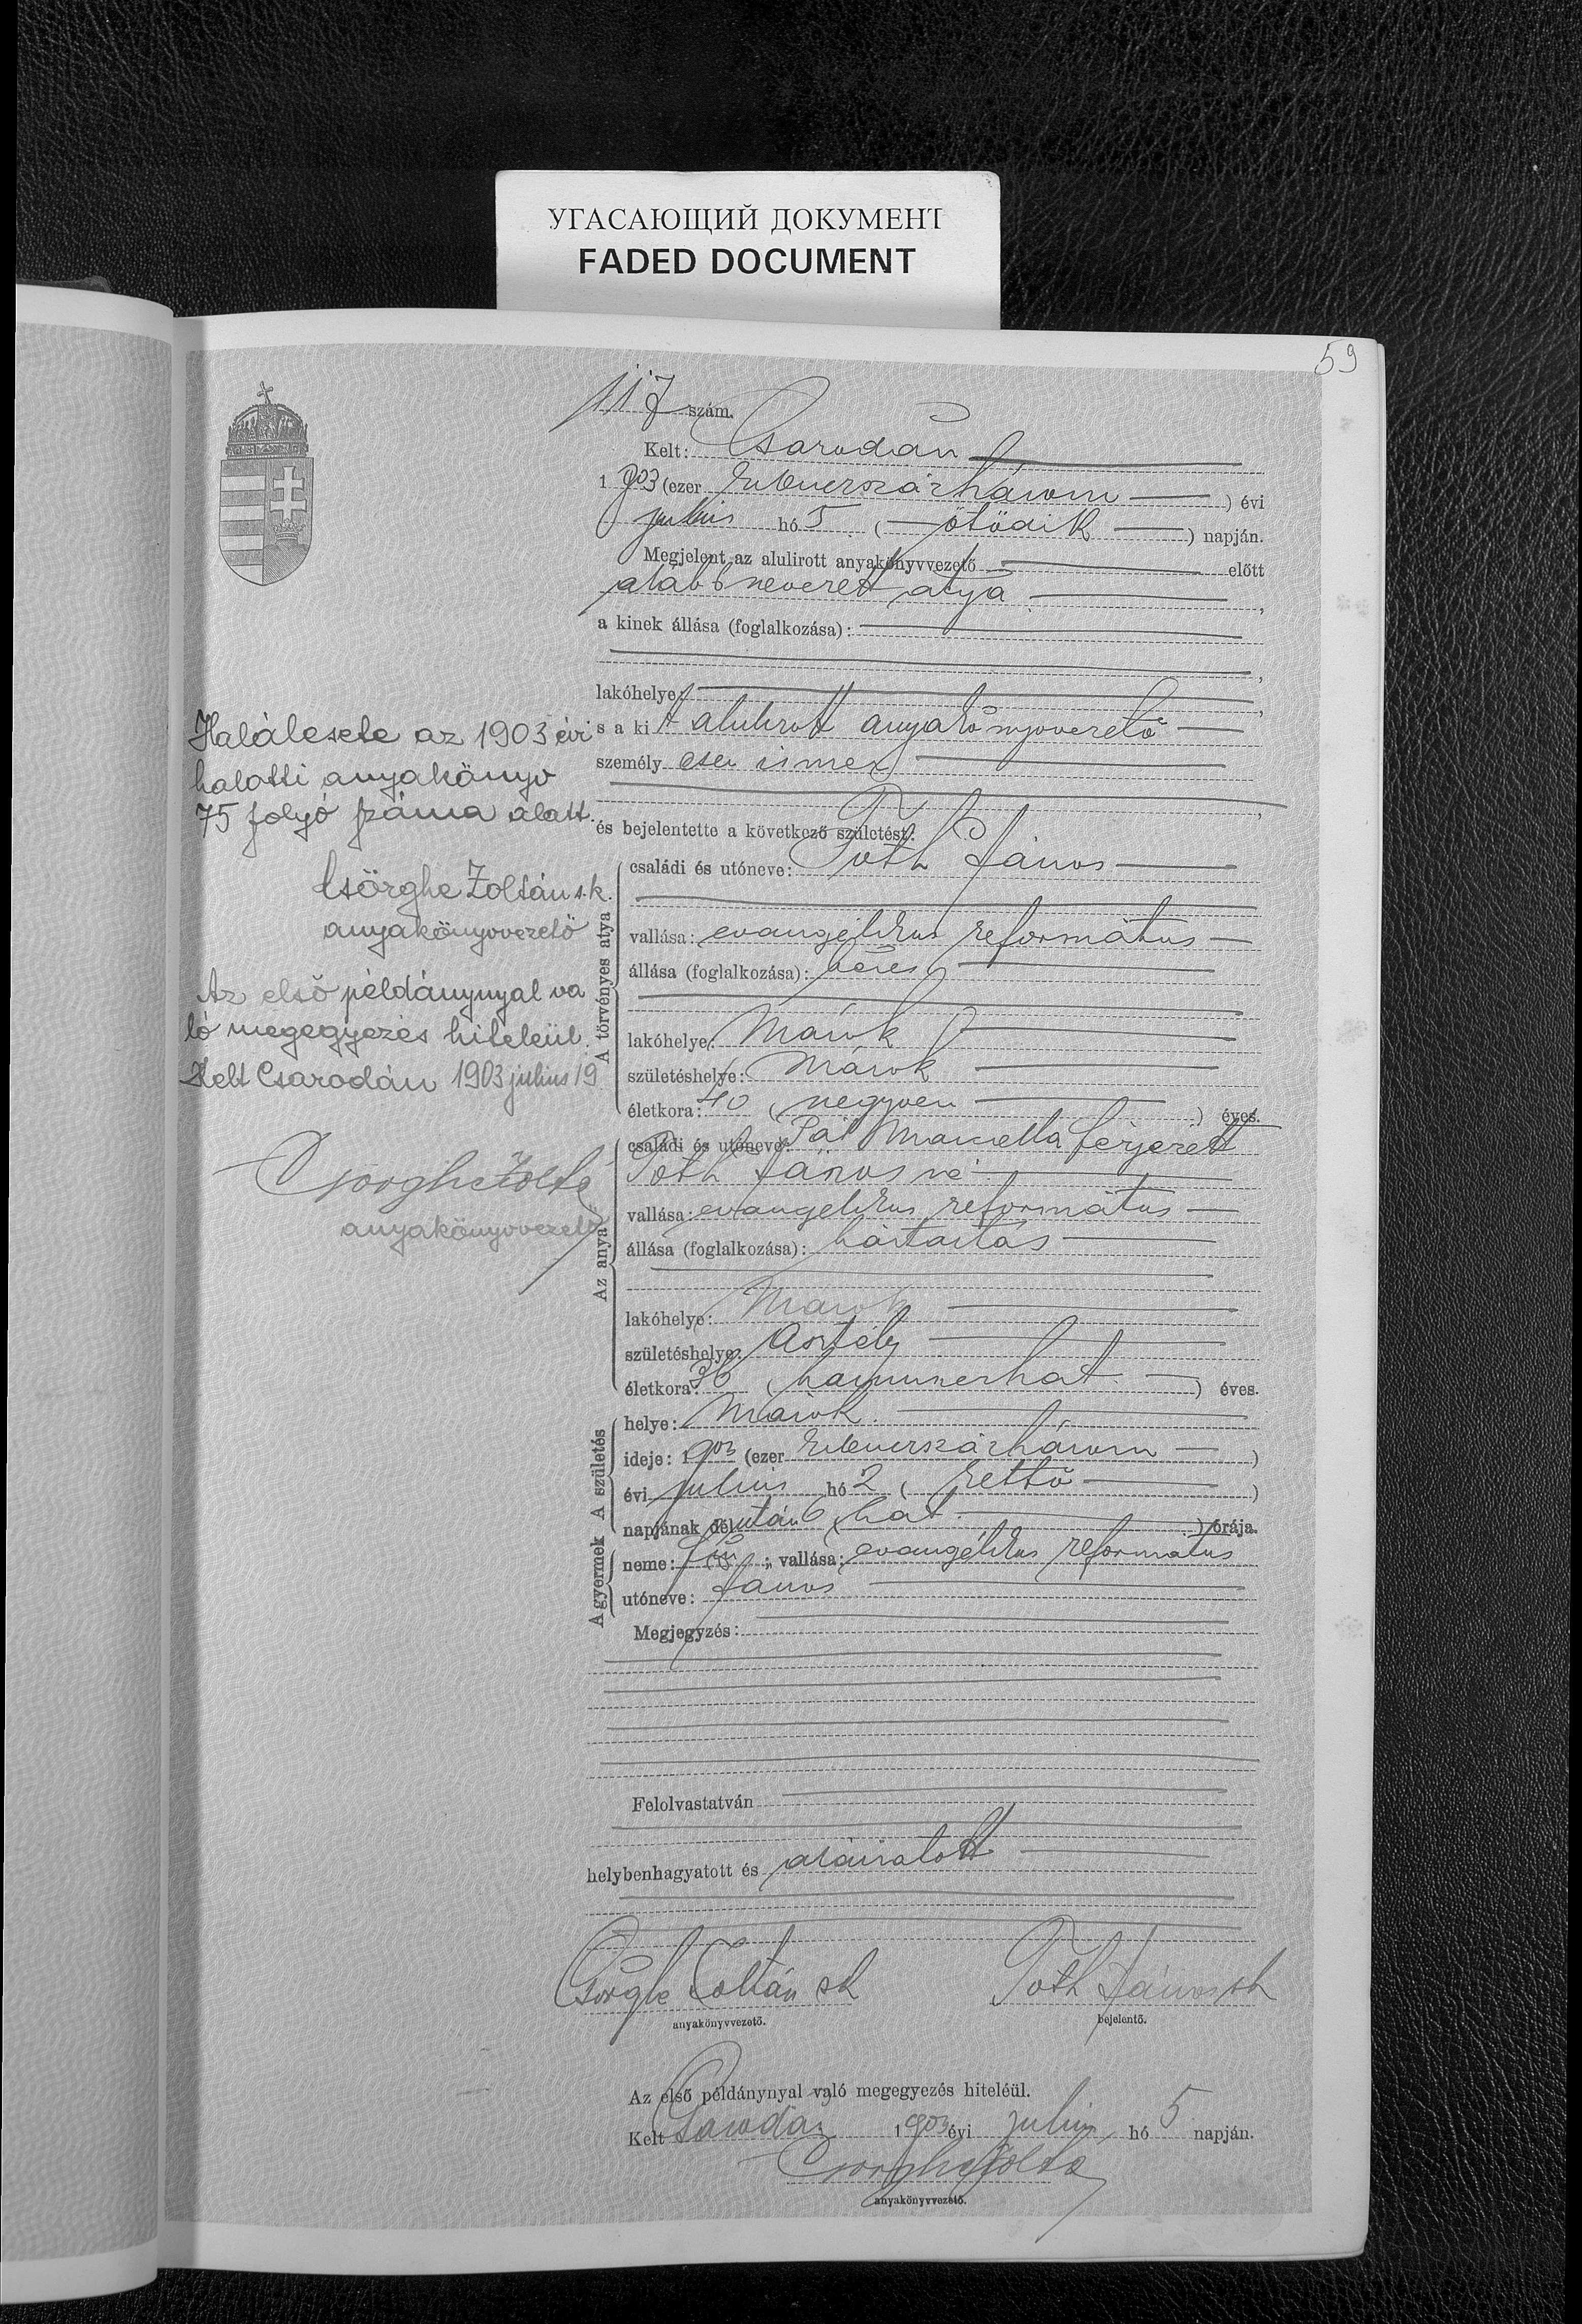 УГАСАЮЩИЙ ДОКУМЕНТ
FADED DOCUMENT
59
117 szám.
Kelt: Csarodán
1903 (ezer kilenczszázhárom) évi
julius hó 5 (ötödik) napján.
Megjelent az alulirott anyakönyvvezető előtt
alább nevezett atya,
a kinek állása (foglalkozása):
lakóhelye:
s a kit alulirott anyakönyvvezető
személyesen ismer
és bejelentette a következő születést:
A törvényes atya
családi és utóneve: Tóth János
vallása: evangélikus református
állása (foglalkozása): béres
lakóhelye: Márok
születéshelye: Márok
életkora: 40 (negyven) éves.
Az anya
családi és utóneve: Pál férjezett
Tóth Jánosné
vallása: evangelikus református
állása (foglalkozása): háztartás
lakóhelye: Márok
születéshelye: Asztély
életkora: 36 (harminczhat) éves.
A születés
helye: Márok
ideje: 1903 (ezer kilenczszázhárom)
évi julius hó 2 (kettő)
napjának délután 6 (hat) órája.
A gyermek
neme: fiú; vallása: evangélikus református
utóneve: János
Megjegyzés:
Felolvastatván
helybenhagyatott és aláiratott
Csörghe Zoltán sk Tóth János sk
anyakönyvvezető. bejelentő.
Az első példánynyal való megegyezés hiteléül.
Kelt Csarodán 1903 évi julius hó 5 napján.
Csörghe Zoltán
anyakönyvvezető.
Halálesete az 1903 évi
halotti anyakönyv
75 folyó száma alatt.
Csörghe Zoltán s.k.
anyakönyvvezető
Az első példánynyal va
ló megegyezés hiteléül.
Kelt Csarodán 1903 julius 19
Csörghe Zoltán
anyakönyvvezető